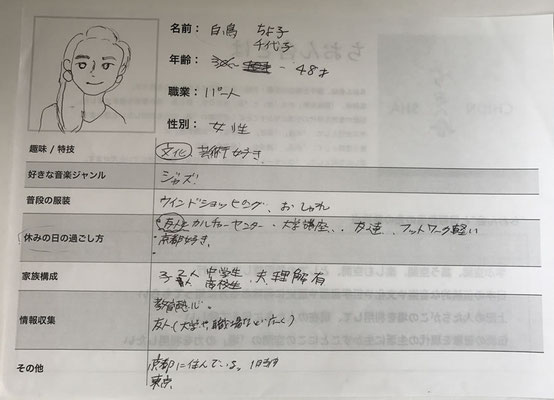 名前： 白鳥 ちよ子
千代子
年齢： - 48才
職業： パート
性別： 女性
趣味 / 特技 文化 芸術好き
好きな音楽ジャンル ジャズ
普段の服装 ウインドショッピング、おしゃれ
休みの日の過ごし方 カルチャーセンター・大学講座、友達、フットワーク軽い
・京都好き、
家族構成 子2人 中学生 夫理解有
高校生
情報収集 教育熱心。
友人(大学や職場など広く)
その他 京都に住んでいる。
東京